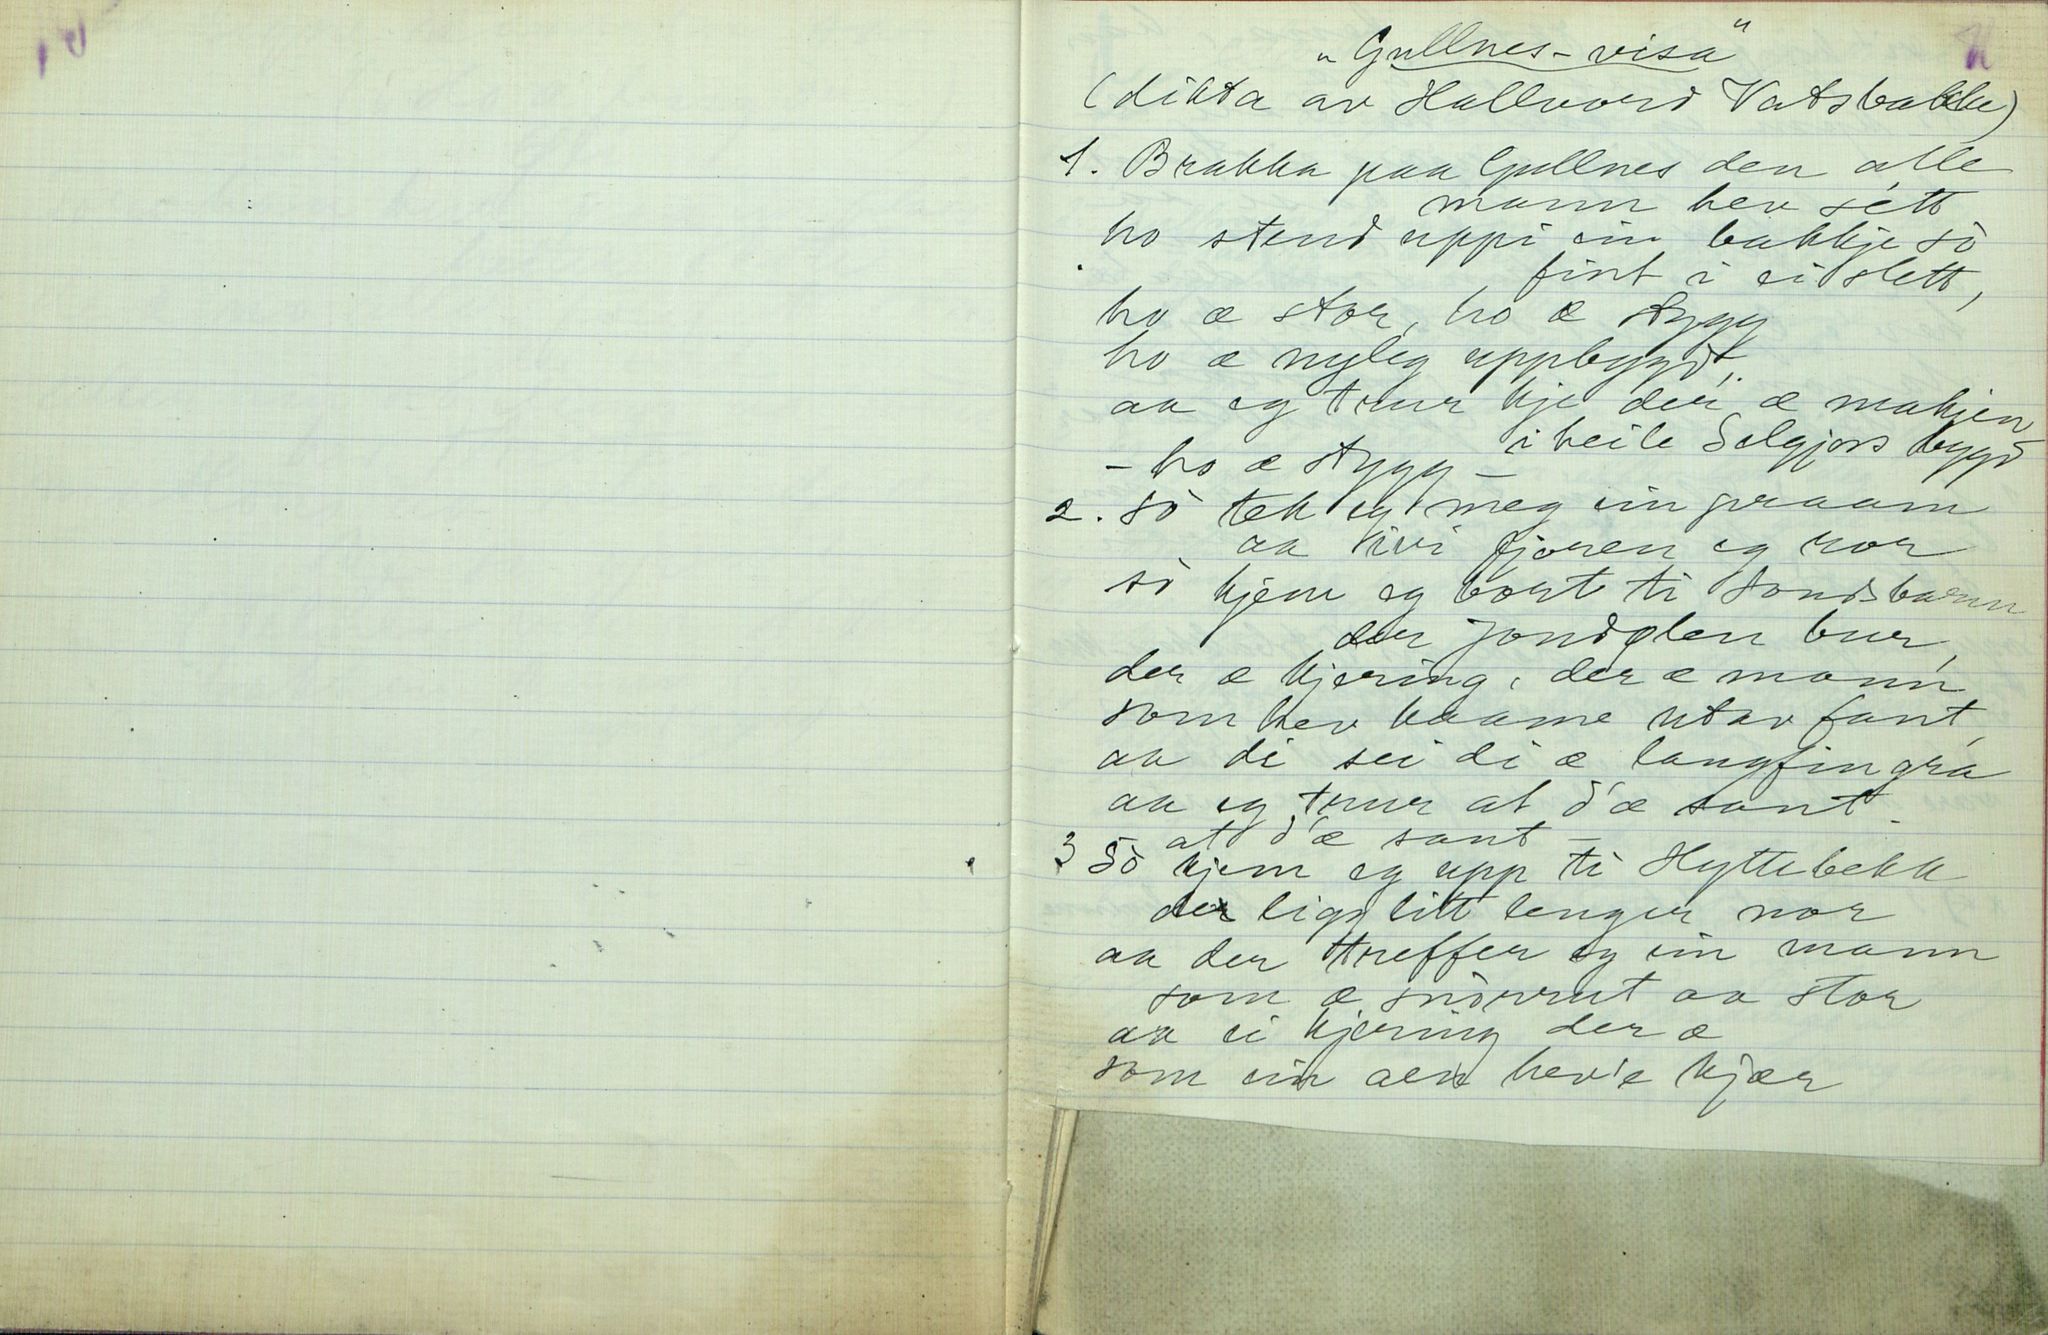 10
"Gullnes-visa"
(dikta av Hallvord Vatsbakke)
1. Brakka paa Gullnes den alle
mann hev sétt
ho stend uppi ein bakkje sò
fint i ei slett,
ho æ stor, ho æ stygg
ho æ nyleg uppbygd,
aa eg trur kje der æ makjen
i heile Selgjors bygd
- ho æ stygg -
2. Sò tek eg meg ein praam
aa ivi fjoren eg ror
sò kjem eg bort ti Sondsbarm
der bur,
der æ kjering, der æ mann
som hev kaame utav fant,
aa di sei di æ langfingra
aa eg truur at d'æ sant
at d'æ sant -
3 Sò kjem eg upp ti Hyttebekk
der ligg litt lenger nor
aa der treffer eg ein mann
som æ snòrrut aa stor
aa ei kjering der æ
som ein aen hev'e kjær